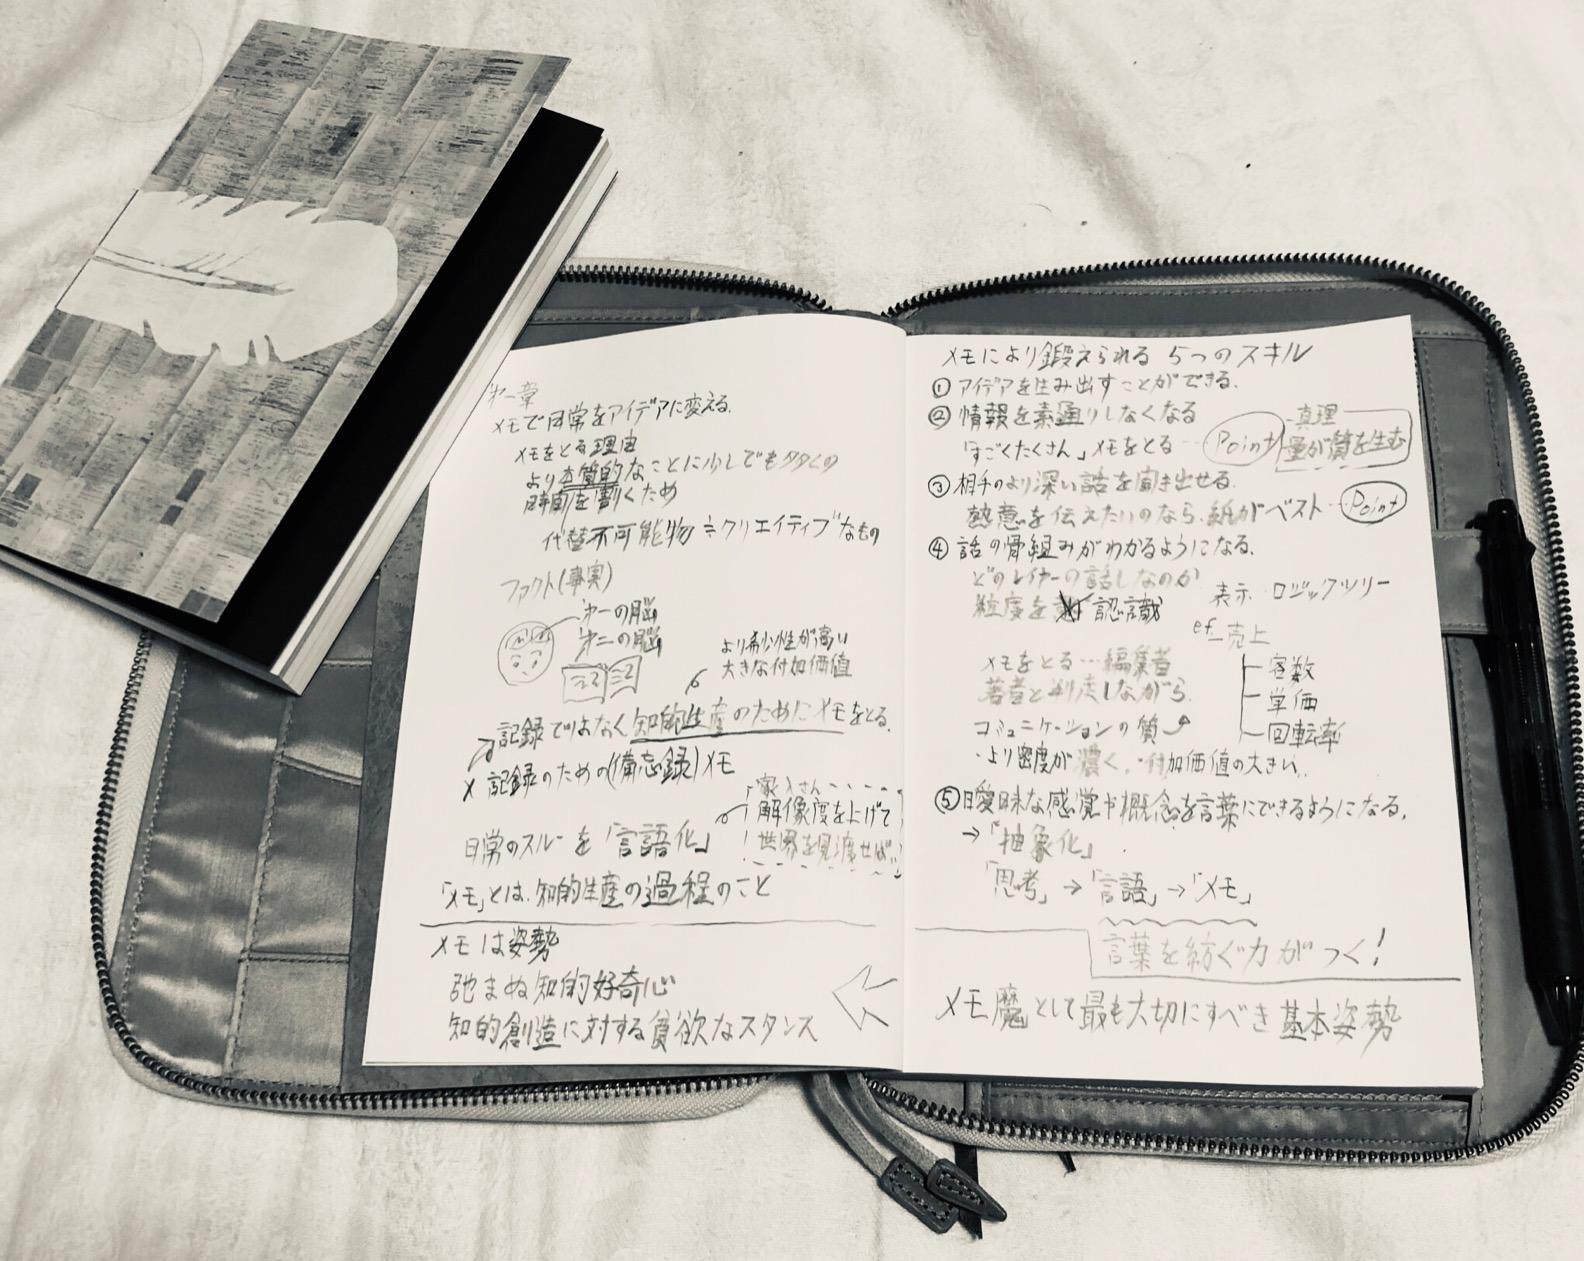 第一章
メモで日常をアイデアに変える。
メモをとる理由
より本質的なことに少しでも多くの
時間を割くため
代替不可能物≒クリエイティブなもの
ファクト(事実)
第一の脳
第二の脳
より希少性が高い
大きな付加価値
記録ではなく知的生産のためにメモをとる。
× 記録のための(備忘録)メモ
日常のスルーを「言語化」
解像度を上げて
世界を見渡せば
「メモ」とは、知的生産の過程のこと
メモは姿勢
弛まぬ知的好奇心
知的創造に対する貪欲なスタンス
メモにより鍛えられる 5つのスキル
①アイデアを生み出すことができる。
②情報を素通りしなくなる
「すごくたくさん」メモをとる … Point
真理
量が質を生む
③相手のより深い話を聞き出せる。
熱意を伝えたいのなら、紙がベスト…Point
④話の骨組みがわかるようになる。
どのレイヤーの話しなのか
粒度を 認識
表示・ロジックツリー
ef_売上
客数
単価
回転率
メモをとる…編集者
著者と並走しながら
コミュニケーションの質
・より密度が濃く、・付加価値の大きい、
⑤曖昧な感覚や概念を言葉にできるようになる。
→「抽象化」
「思考」→「言語」→「メモ」
言葉を紡ぐ力がつく!
メモ魔として最も大切にすべき基本姿勢